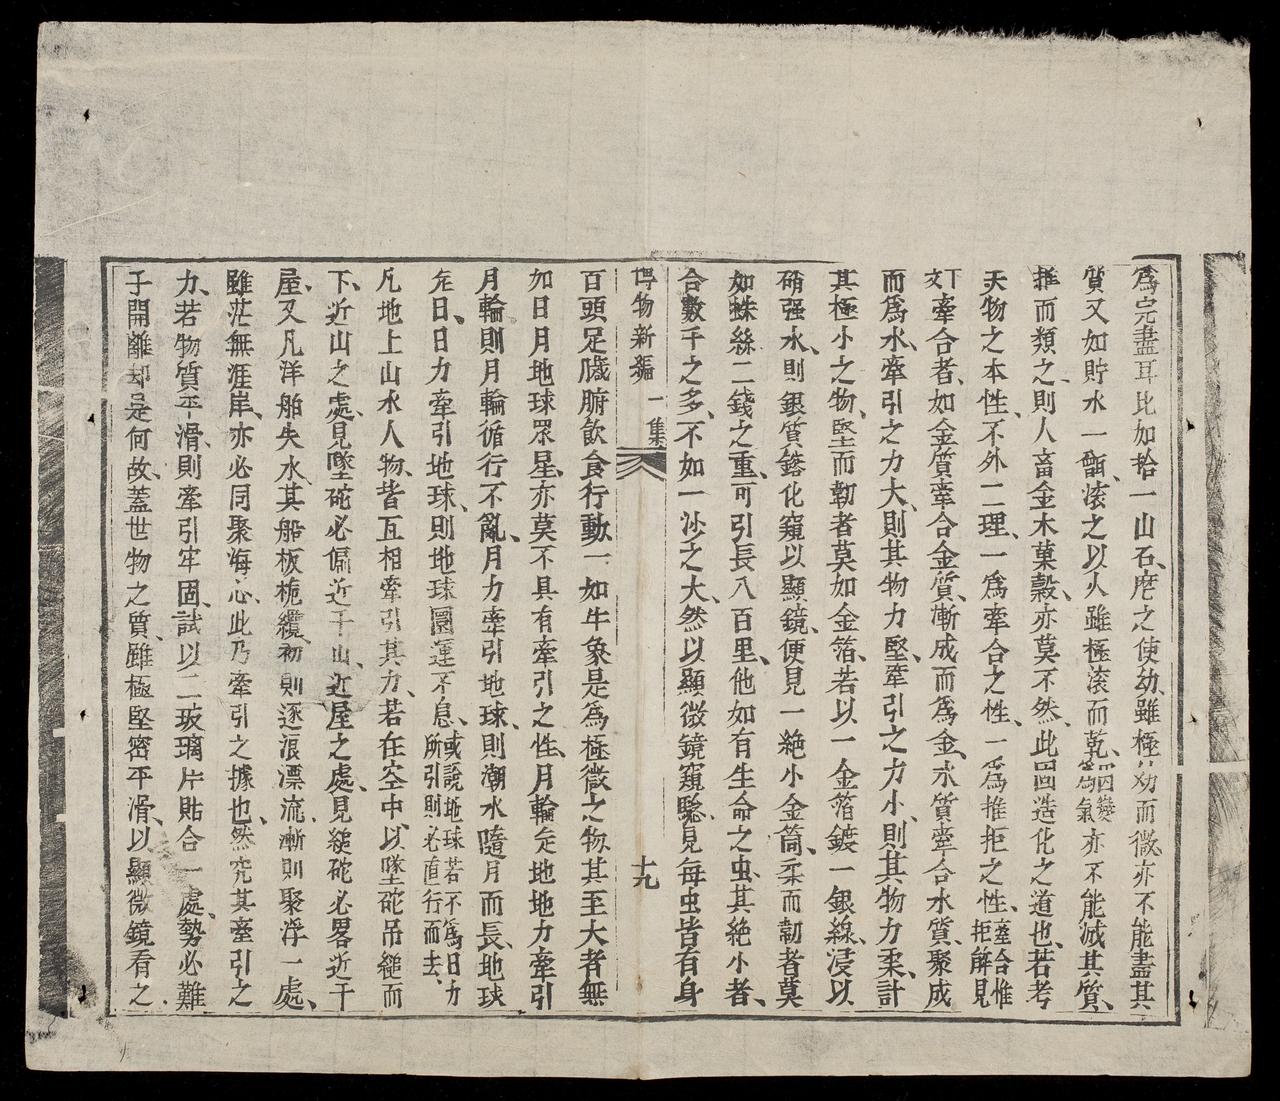 爲完盡耳比如拾一山石磨之使幼、雖極幼而微亦不能盡其
質又如貯水一甑、滾之以火雖極滾而乾、因變爲氣亦不能滅其質、
推而類之、則人畜金木菓穀、亦莫不然、此固造化之道也、若考
天物之本性、不外二理、一爲牽合之性、一爲推拒之性、牽合惟拒解見
下文牽合者、如金質牽合金質、漸成而爲金、水質牽合水質、聚成
而爲水、牽引之力大、則其物力堅、牽引之力小、則其物力柔、計
其極小之物、堅而韌者莫如金箔、若以一金箔鍍一銀線、浸以
硝强水、則銀質鎔化窺以顯鏡、便見一絶小金筒、柔而韌者莫
如蛛絲二錢之重、可引長八百里、他如有生命之虫、其絶小者、
合數千之多、不如一沙之大、然以顯微鏡窺騐、見每虫皆有身
博物新編 一集 十九
百頭足臟腑飲食行動一如牛象是爲極微之物其至大者無
如日月地球眾星、亦莫不具有牽引之性、月輪走地地力牽引
月輪則月輪循行不亂、月力牽引地球、則潮水隨月而長、地球
走日、日力牽引地球、則地球圜運不息、或說地球若不爲日力所引則必直行而去、
凡地上山水人物、皆互相牽引其力、若在空中、以墜砣吊縋而
下、近山之處、見墜砣必偏近于山、近屋之處、見縋砣必畧近于
屋、又凡洋舶失水其船板桅纜、初則逐浪漂流、漸則聚浮一處、
雖茫無涯岸、亦必同聚海心、此乃牽引之據也、然究其牽引之
力、若物質平滑、則牽引牢固、試以二玻璃片貼合一處、勢必難
于開離却是何故、蓋世物之質、雖極堅密平滑、以顯微鏡看之